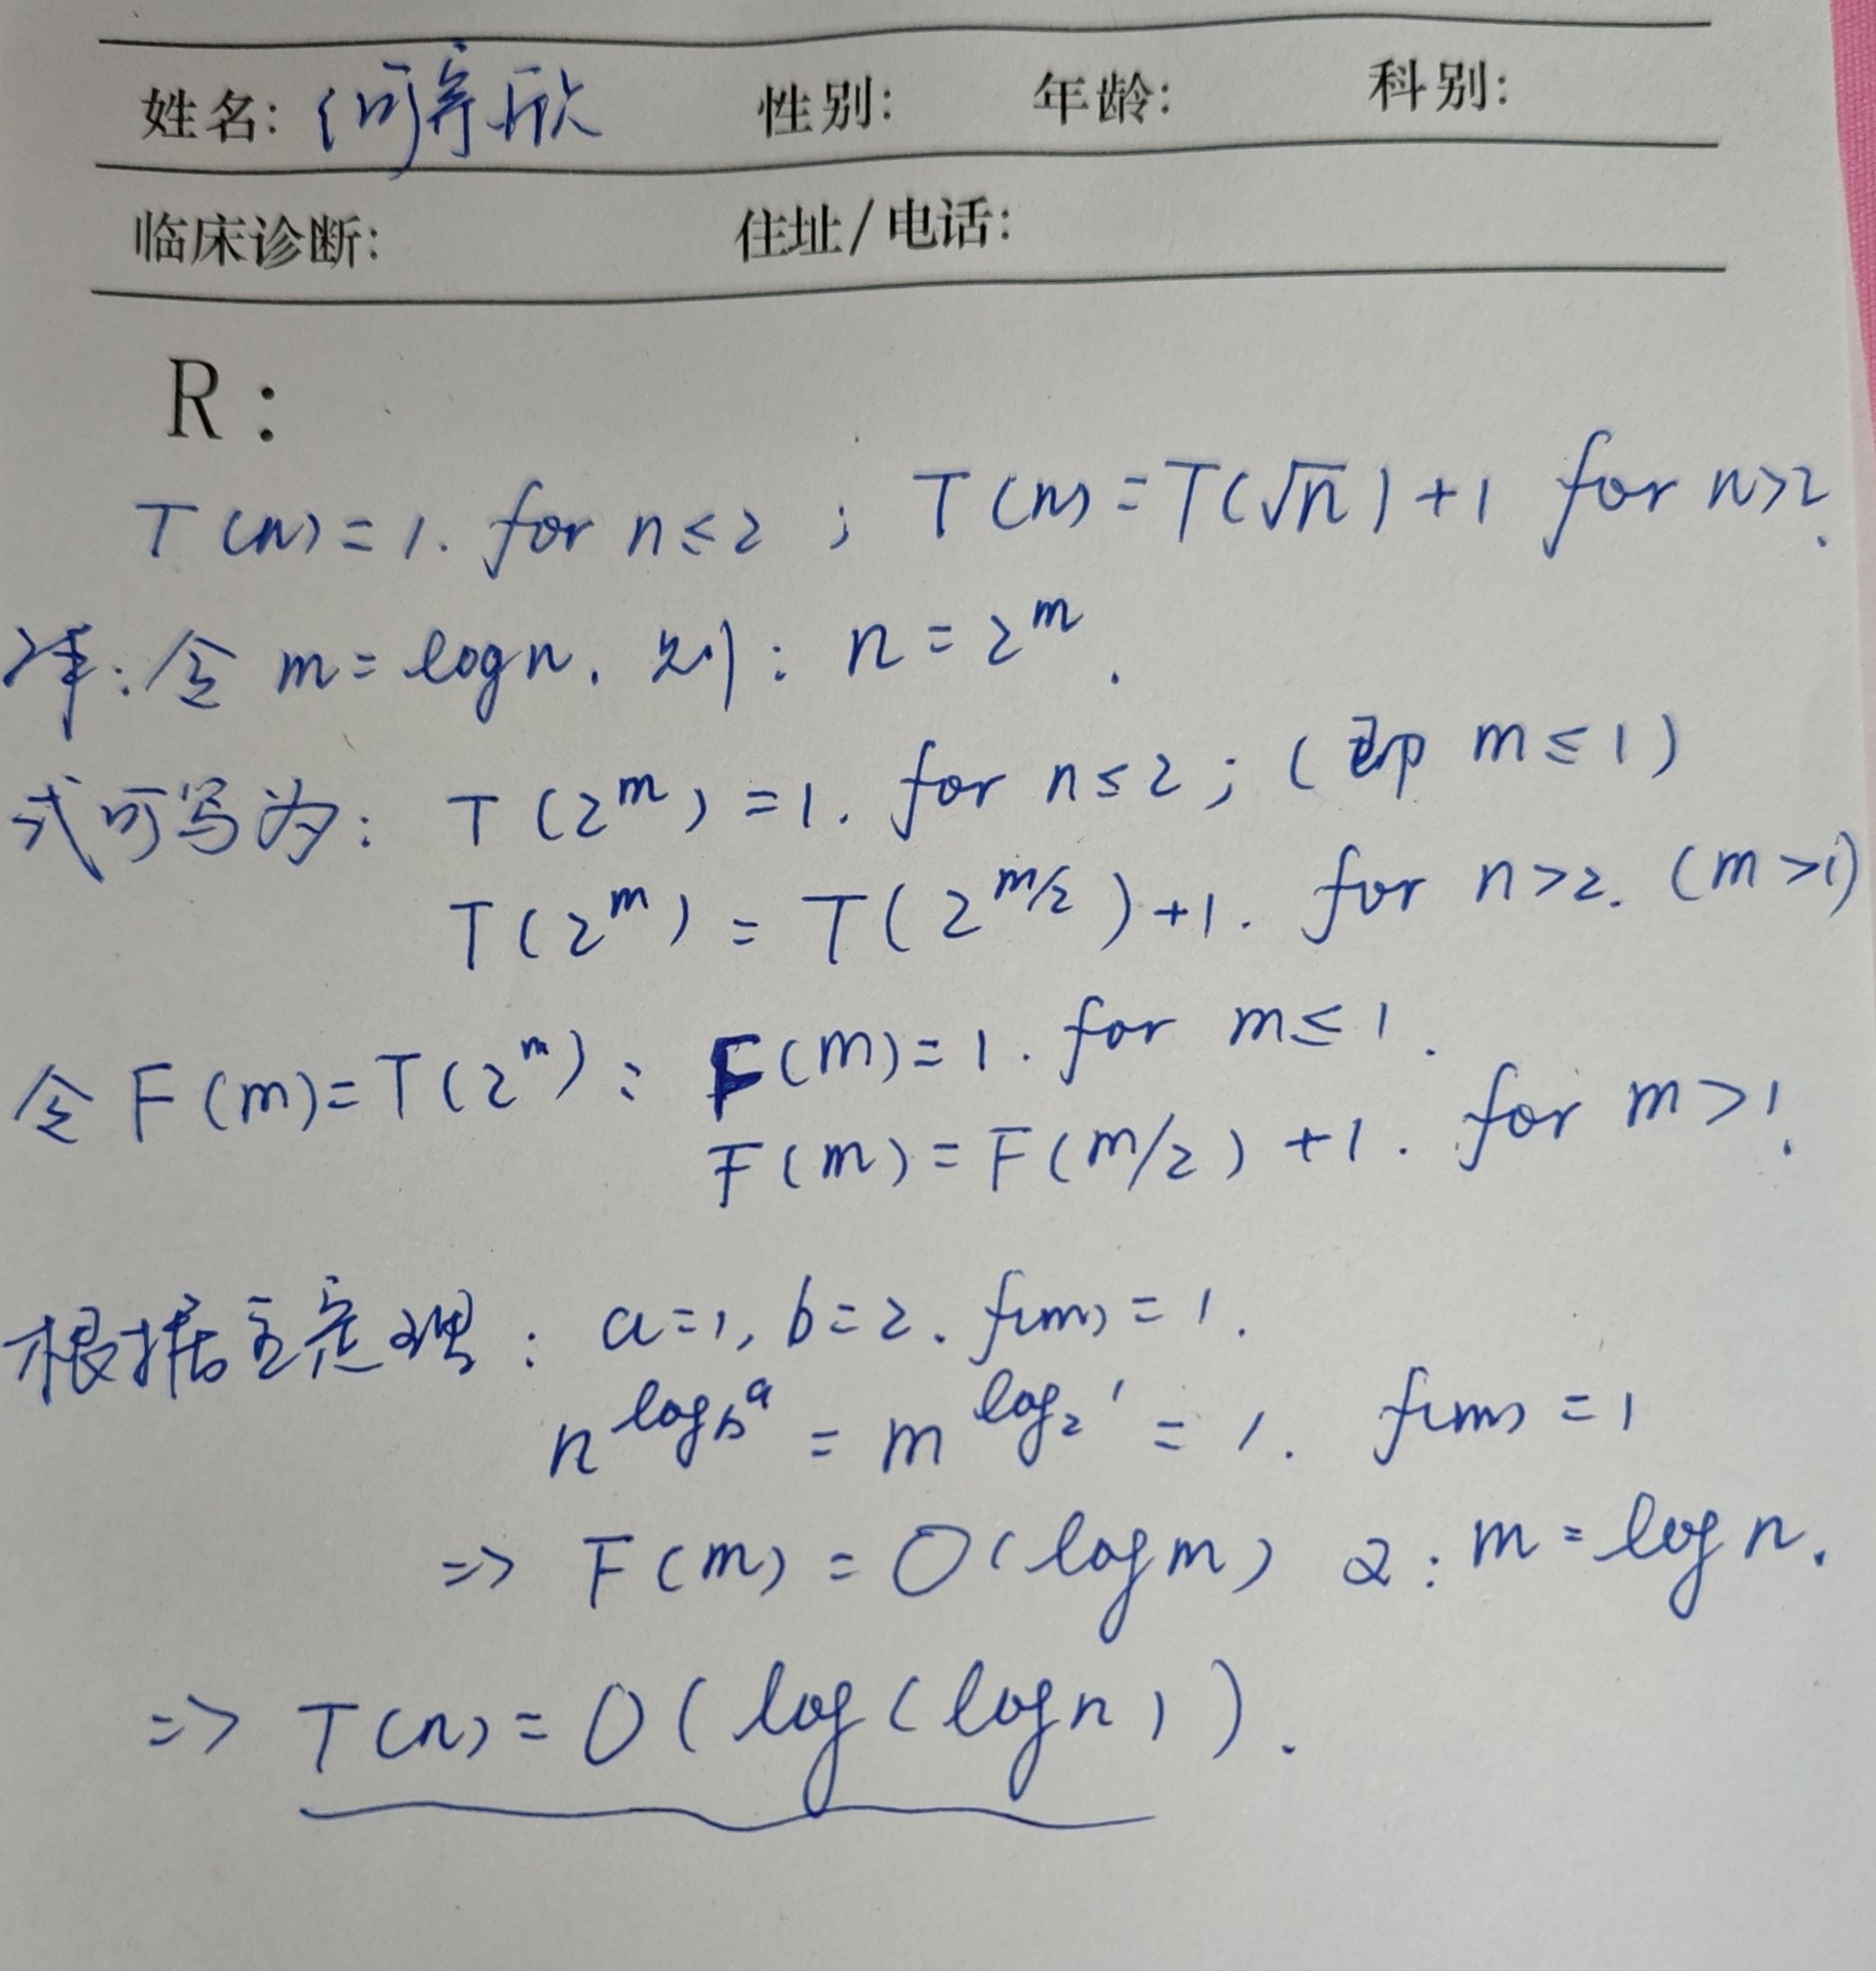 姓名: 何 欣 性别: 年龄: 科别:
临床诊断: 住址/电话:
R:
T(n)=1. for n≤2 ; T(n)=T(√n)+1 for n>2.
令 m=logn. 则: n=2^m.
式可写为: T(2^m)=1. for n≤2; (即 m≤1)
T(2^m)=T(2^{m/2})+1. for n>2. (m>1)
令 F(m)=T(2^m): F(m)=1. for m≤1.
F(m)=F(m/2)+1. for m>1.
根据主定理: a=1, b=2. f(m)=1.
n^{log_b a} = m^{log_2 1} = 1. f(m)=1
=> F(m)=O(logm) 又: m=logn.
=> T(n)=O(log(logn)).